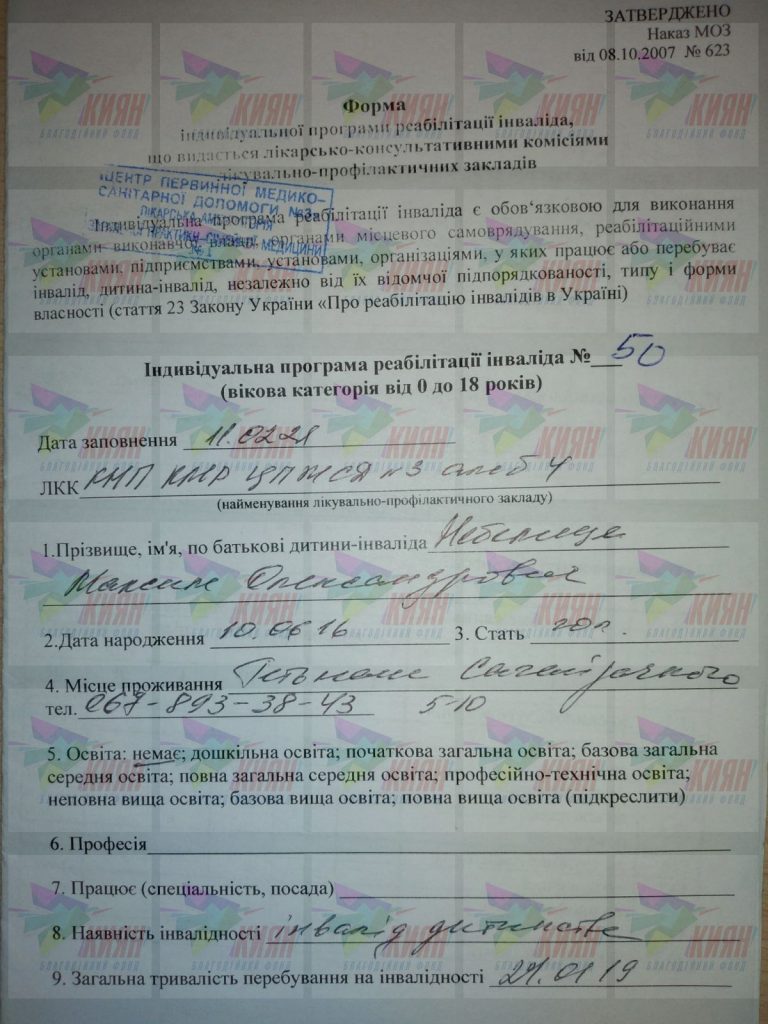 ЗАТВЕРДЖЕНО
Наказ МОЗ
від 08.10.2007 № 623
Форма
індивідуальної програми реабілітації інваліда,
що видається лікарсько-консультативними комісіями
лікувально-профілактичних закладів
ЦЕНТР ПЕРВИННОЇ МЕДИКО-
САНІТАРНОЇ ДОПОМОГИ №3
ЛІКАРСЬКА АМБУЛАТОРІЯ
Індивідуальна програма реабілітації інваліда є обов‘язковою для виконання
органами виконавчої влади, органами місцевого самоврядування, реабілітаційними
установами, підприємствами, установами, організаціями, у яких працює або перебуває
інвалід, дитина-інвалід, незалежно від їх відомчої підпорядкованості, типу і форми
власності (стаття 23 Закону України «Про реабілітацію інвалідів в Україні)
Індивідуальна програма реабілітації інваліда № 50
(вікова категорія від 0 до 18 років)
Дата заповнення 11.02.21
ЛКК КНП КМР ЦПМСД №3 амб 4
(найменування лікувально-профілактичного закладу)
1.Прізвище, ім'я, по батькові дитини-інваліда
Максим Олександрович
2.Дата народження 10.06.16 3. Стать чол.
4. Місце проживання Гетьмана Сагайдачного
тел. 067-893-38-43 5-10
5. Освіта: немає; дошкільна освіта; початкова загальна освіта; базова загальна
середня освіта; повна загальна середня освіта; професійно-технічна освіта;
неповна вища освіта; базова вища освіта; повна вища освіта (підкреслити)
6. Професія
7. Працює (спеціальність, посада)
8. Наявність інвалідності інвалід дитинства
9. Загальна тривалість перебування на інвалідності 24.01 19
КИЯН
БЛАГОДІЙНИЙ ФОНД